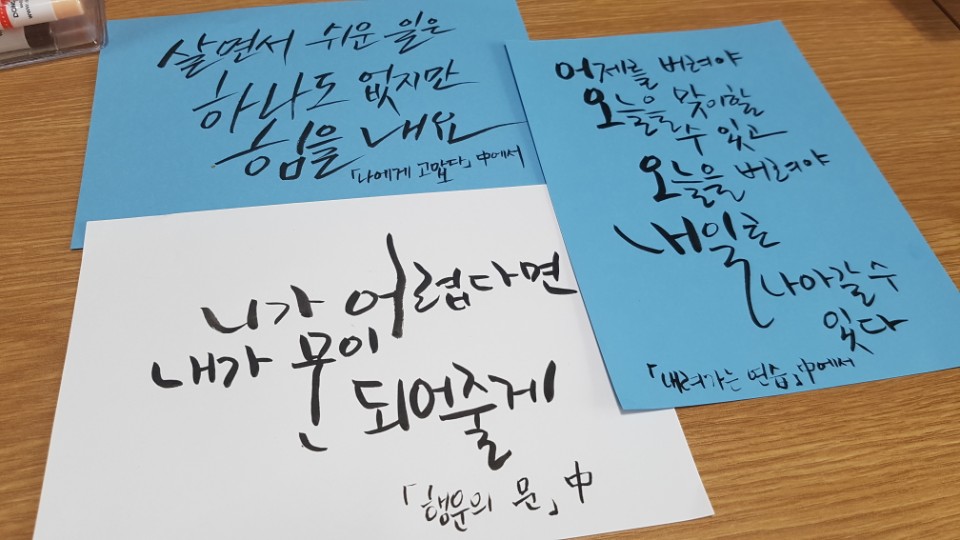 살면서 쉬운 일은
하나도 없지만
힘을 내요
「나에게 고맙다」 中에서
어제를 버려야
오늘을 맞이할
수 있고
오늘을 버려야
내일로
나아갈 수
있다
「내려가는 연습」 中에서
니가 어렵다면
내가 문이
되어줄게
「행운의 문」 中